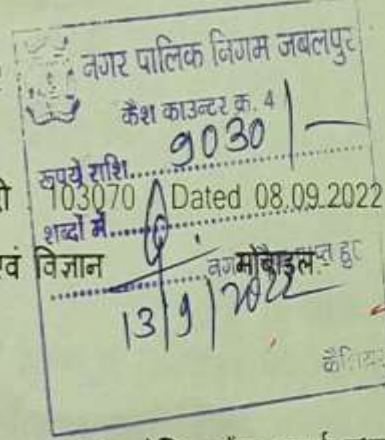 नगर पालिक निगम जबलपुर
कैश काउन्टर क्र. 4
रूपये राशि..... 9030/-
103070 Dated 08.09.2022
शब्दों में.....
एवं विज्ञान
मोबाइल
13/9/2022